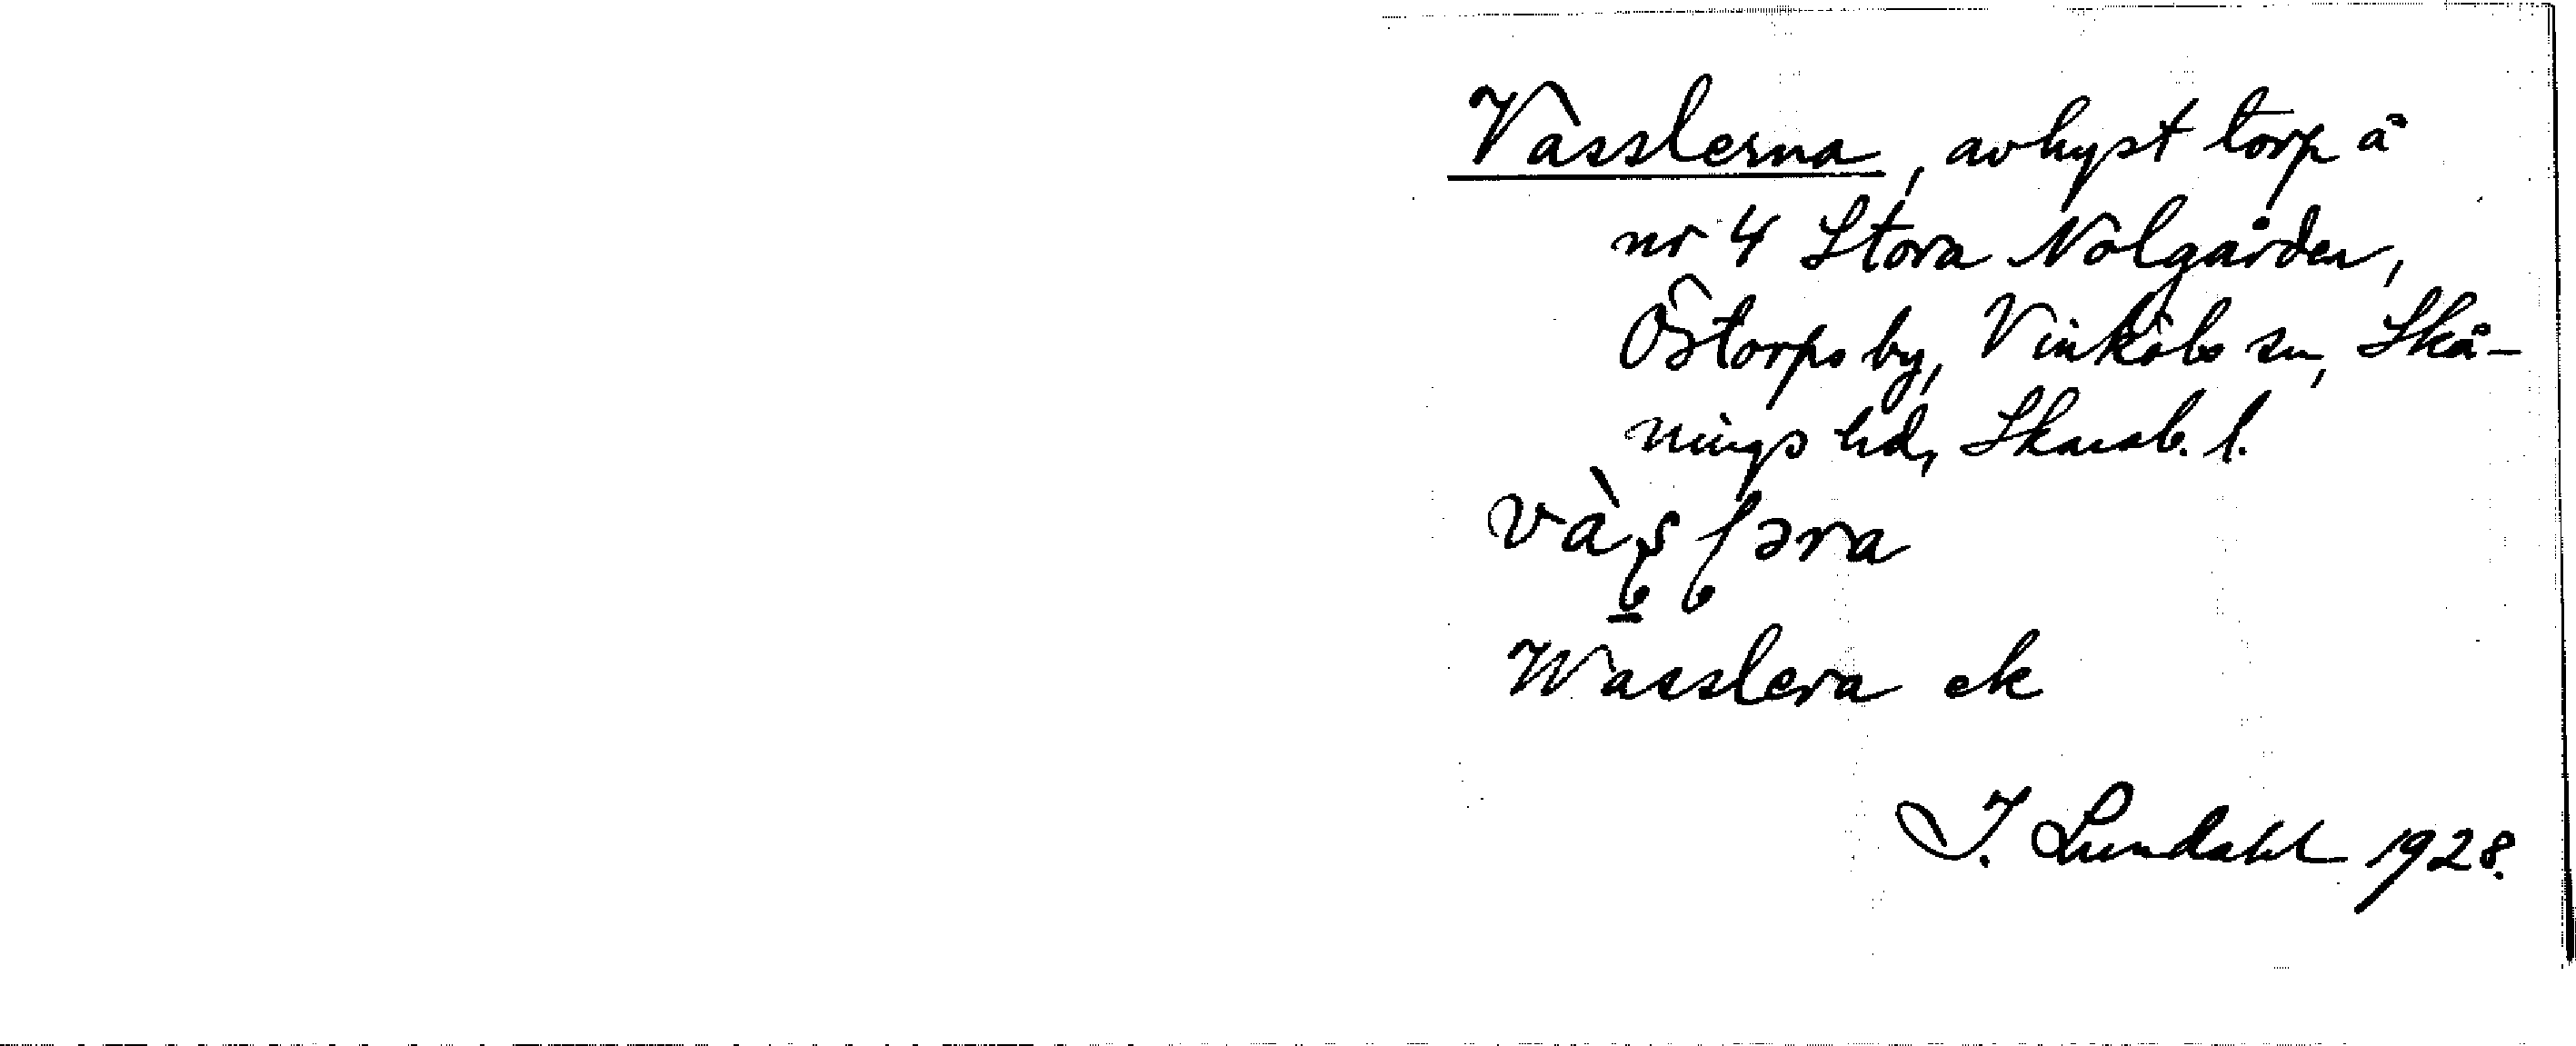 Vasslerna, avhyst torp å
nr 4 Stora Nolgården,
Östorps by, Vinköls sn, Skå-
nings hd, Skarab. l.
Wasslera ek
I. Lundahl 1928.